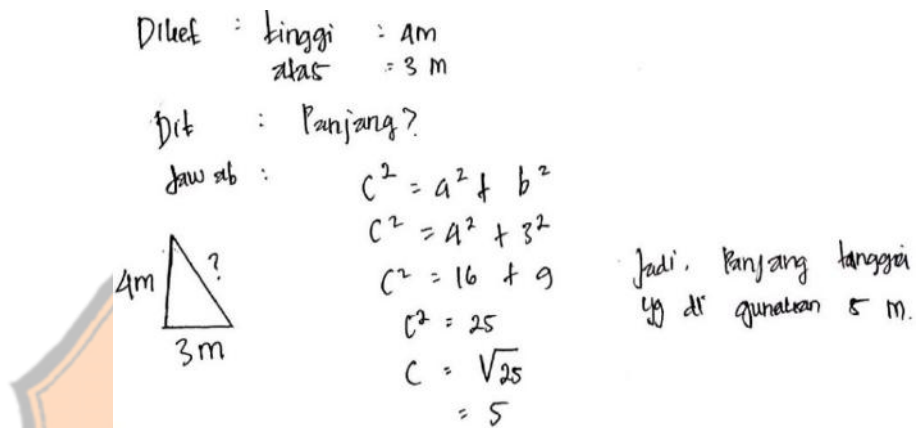 Diket : tinggi : 4m
alas = 3 m
Dit : Panjang?
Jawab :
c² = a² + b²
c² = 4² + 3²
c² = 16 + 9
c² = 25
c = √25
= 5
4m
?
3m
Jadi, Panjang tangga
yg di gunakan 5 m.